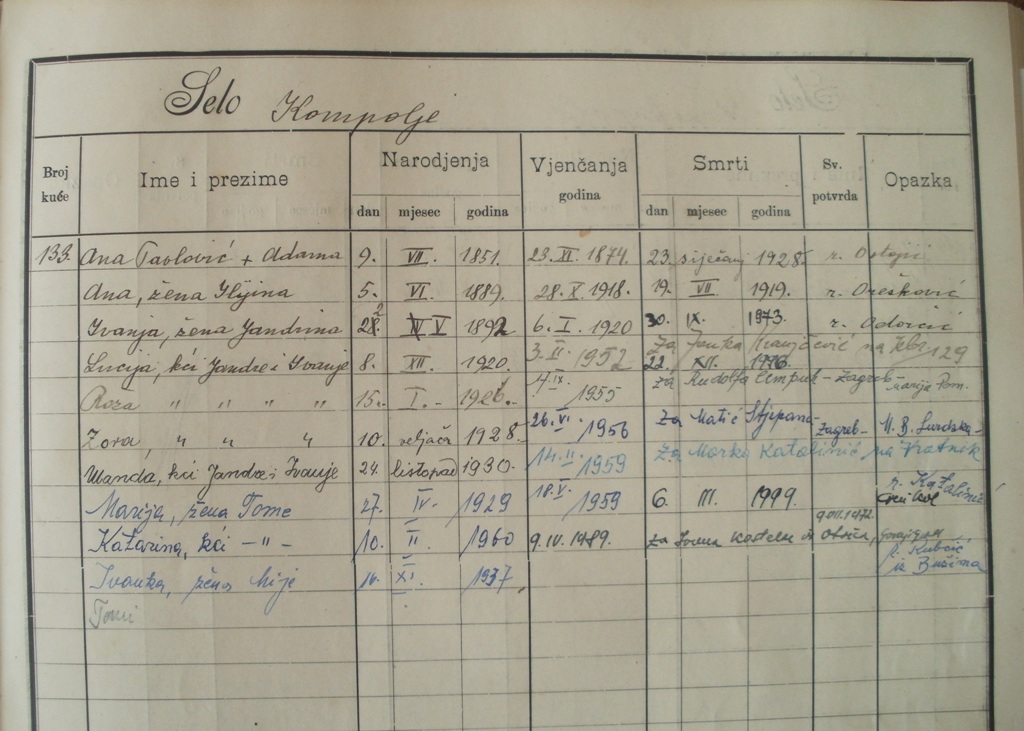 Selo Kompolje
Broj kuće Ime i prezime Narodjenja Vjenčanja godina Smrti Sv. potvrda Opazka
dan mjesec godina dan mjesec godina
133. Ana Pavlović + Adama 9. VII. 1851. 23. XI. 1874. 23. siječanj 1928. r. Ostojić
Ana, žena Ilijina 5. VI. 1889. 28. X. 1918. 19. VII 1919. r. Orešković
Ivanja, žena Jandrina 28. V 1892 6. I. 1920 30. IX. 1973. r. Odorčić
Lucija, kći Jandre i Ivanje 8. XII. 1920. 3. II. 1952 za Kranjčević na kbr 129
22. XII. 1996.
Roza " " " " 15. I. - 1926. IX. 1955 za Rudolfa - Zagreb - Marija Pom.
Zora, " " " 10. veljače 1928. 26. VI. 1956 za Matić Stjepana - Zagreb - M. B. Lurdska -
Manda, kći Jandre i Ivanje 24. listopad 1930. 14. II. 1959 za Marka Katalinić na Vratnik
Marija, žena Tome 27. IV. 1929 18. V. 1959 6. III. 1999. r. Katalinić
Katarina, kći - " - 10. II. 1960 9. IV. 1989. za Kostelu iz
Ivanka, žena Mije XI. 1937. r. Kubčić
iz Bužima
Tomi